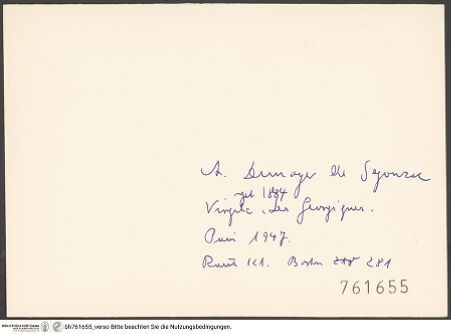 A. Dunoyer de Segonzac
geb 1884
Virgile, Les Georgiques.
Paris 1947.
Boston 281
761655
bh761655_verso Bitte beachten Sie die Nutzungsbedingungen.